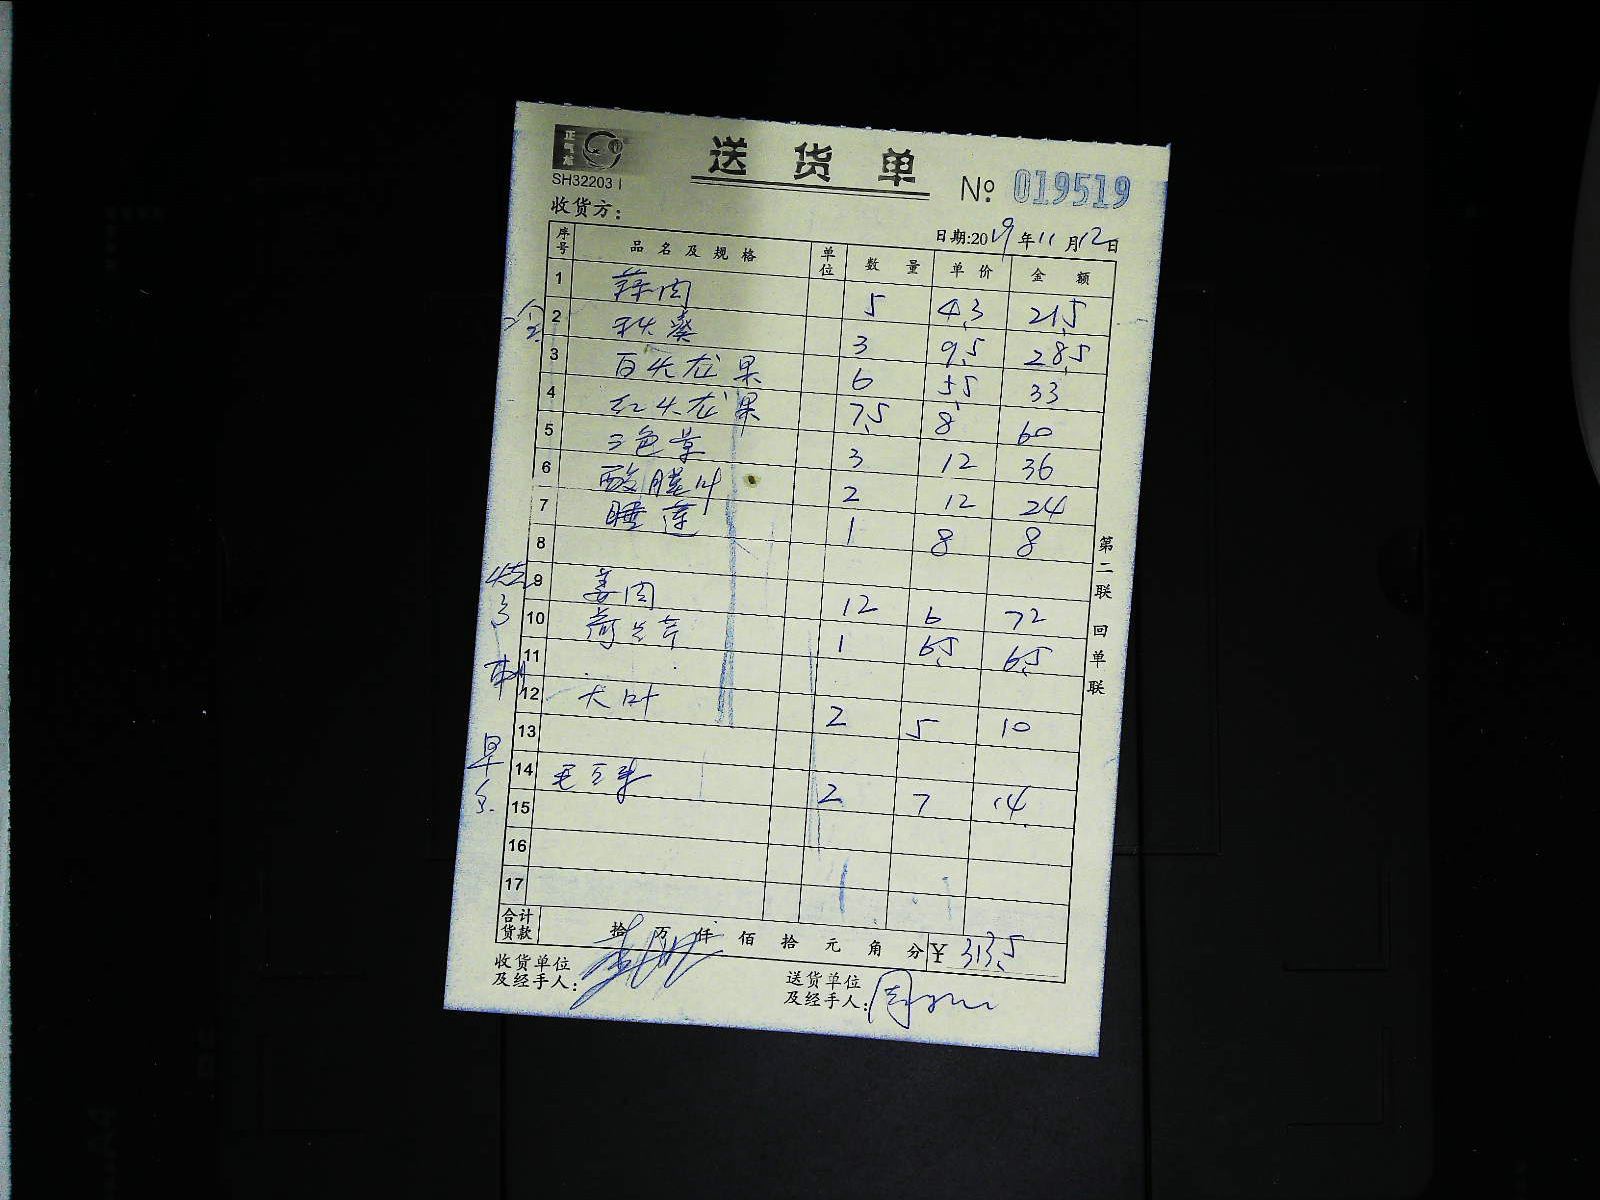 正气龙
SH32203
送货单
№ 019519
收货方:
日期:2019年11月12日
序号 品名及规格 单位 数量 单价 金额
1 蒜肉 5 4.3 21.5
2 秋葵 3 9.5 28.5
3 白火龙果 6 5.5 33
4 红火龙果 7.5 8 60
5 三色草 3 12 36
6 酸膜叶 2 12 24
7 睡莲 1 8 8
8
9 姜肉 12 6 72
10 荷兰芹 1 6.5 6.5
11
12 大叶 2 5 10
13
14 毛豆米 2 7 14
15
16
17
合计货款 拾 万 仟 佰 拾 元 角 分 ¥ 313.5
收货单位及经手人:
送货单位及经手人:
第二联 回单联